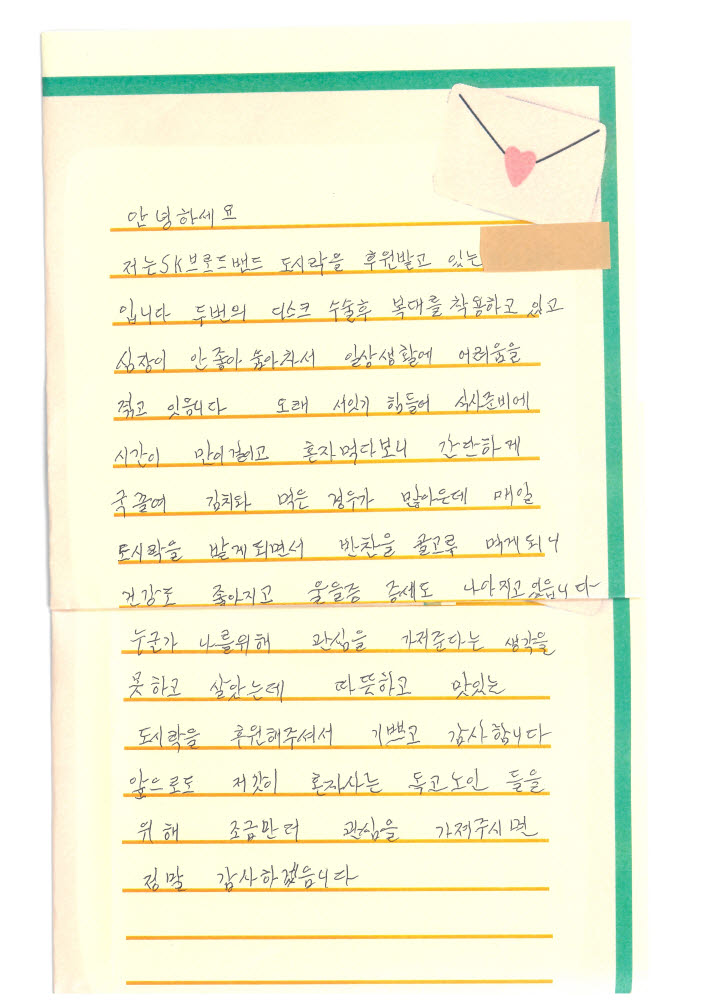 안녕하세요
저는SK브로드밴드 도시락을 후원받고 있는
입니다 두번의 디스크 수술후 복대를 착용하고 있고
심장이 안좋아 숨이차서 일상생활에 어려움을
겪고 있읍니다 오래 서있기 힘들어 식사준비에
시간이 만이걸리고 혼자먹다보니 간단하게
국끓여 김치와 먹은 경우가 많아은데 매일
도시락을 받게되면서 반찬을 골고루 먹게되니
건강도 좋아지고 우을증 증세도 나아지고있읍니다
누군가 나를위해 관심을 가져준다는 생각을
못하고 살았는데 따뜻하고 맛있는
도시락을 후원해주셔서 기쁘고 감사합니다
앞으로도 저같이 혼자사는 독고노인 들을
위해 조금만더 관심을 가져주시면
정말 감사하겠읍니다